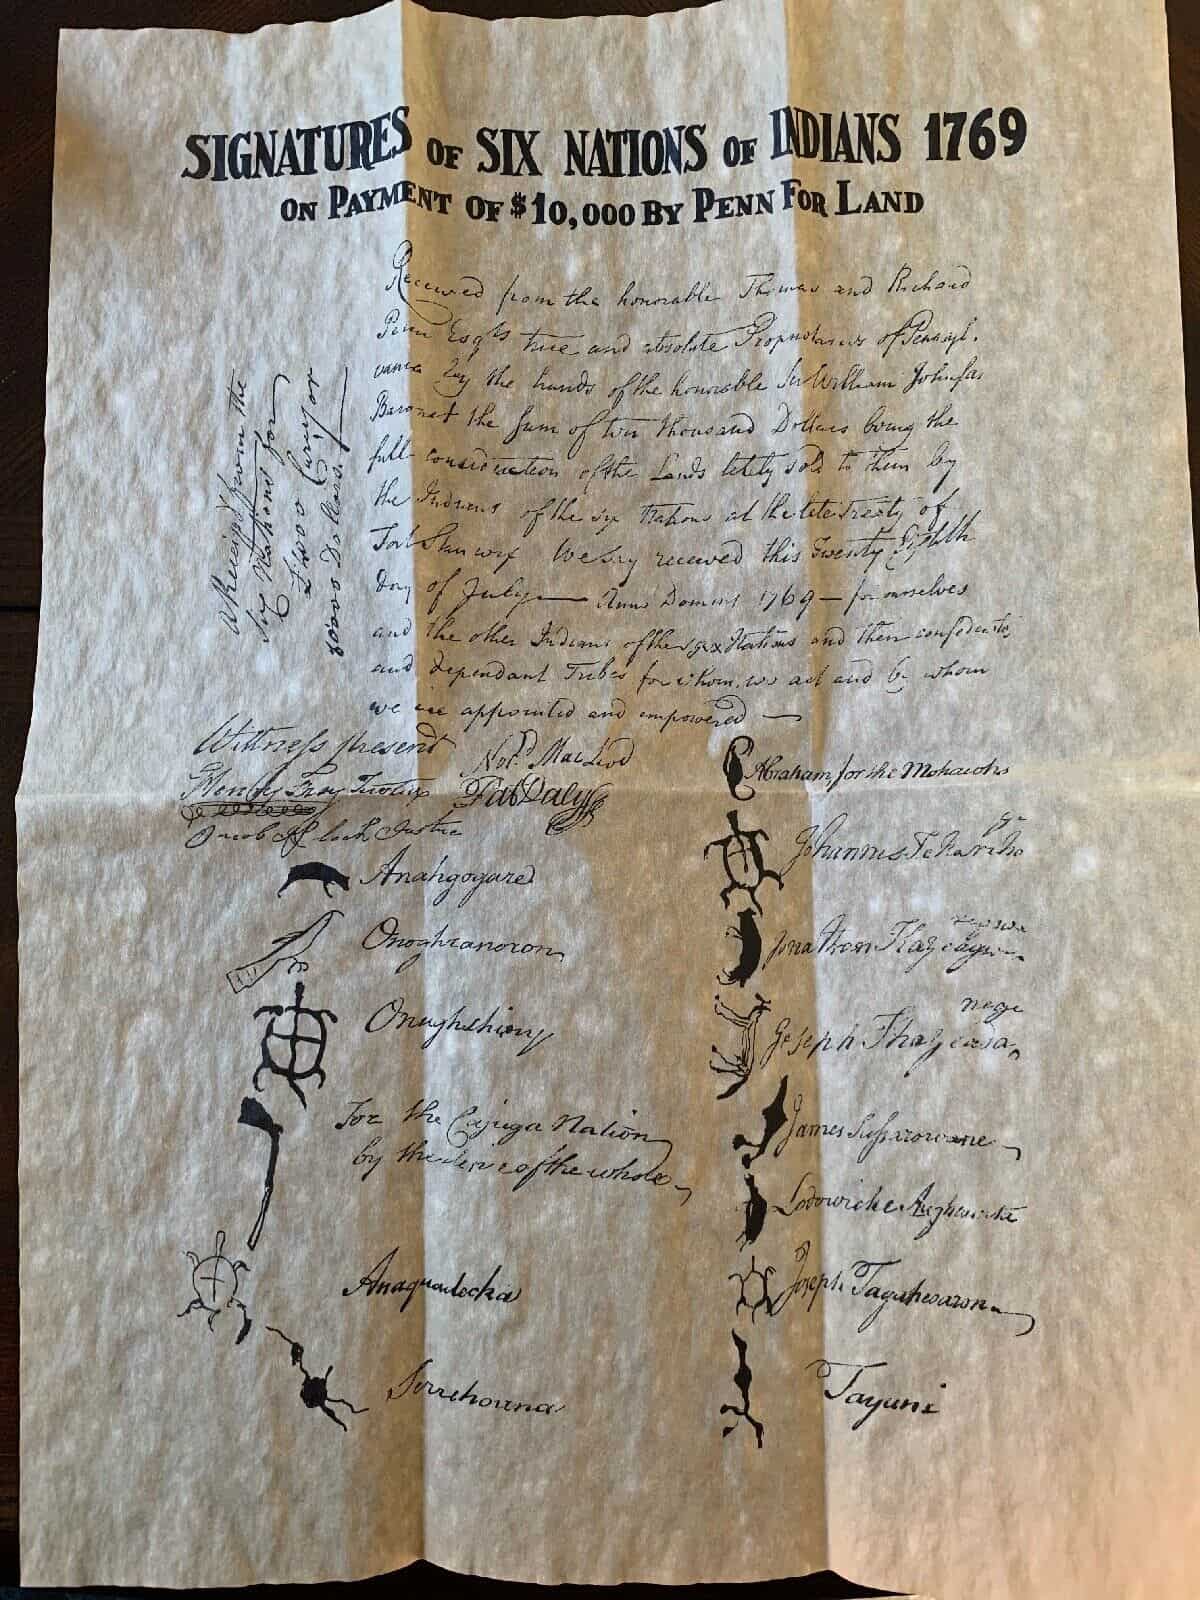 SIGNATURES OF SIX NATIONS OF INDIANS 1769
ON PAYMENT OF $10,000 BY PENN FOR LAND
Received from the honorable Thomas and Richard
Penn Esqrs true and absolute Proprietaries of Pennsyl.
vania by the hands of the honorable Sir William Johnson
Baronet the Sum of ten thousand Dollars being the
full consideration of the Lands lately sold to them by
the Indians of the six Nations at the late Treaty of
Fort Stanwix We say received this Twenty Eighth
Day of July — Anno Domini 1769 — for ourselves
and the other Indians of the six Nations and their confederate
and dependant Tribes for whom we act and by whom
we are appointed and empowered —
A Receipt from the
Six Nations for
10000 Dollars
Wittness present
Henry Frey
Jacob Justice
Abraham for the Mohawks
Johannis Tekariho
ge
Anahgogare
Jonathon
Onoghranoron
Joseph
nege
James
Lodowicke
For the Cajuga Nation
by the of the whole
Joseph Tagahesaron
Anaquadecka
Serrehowna
Tayuni